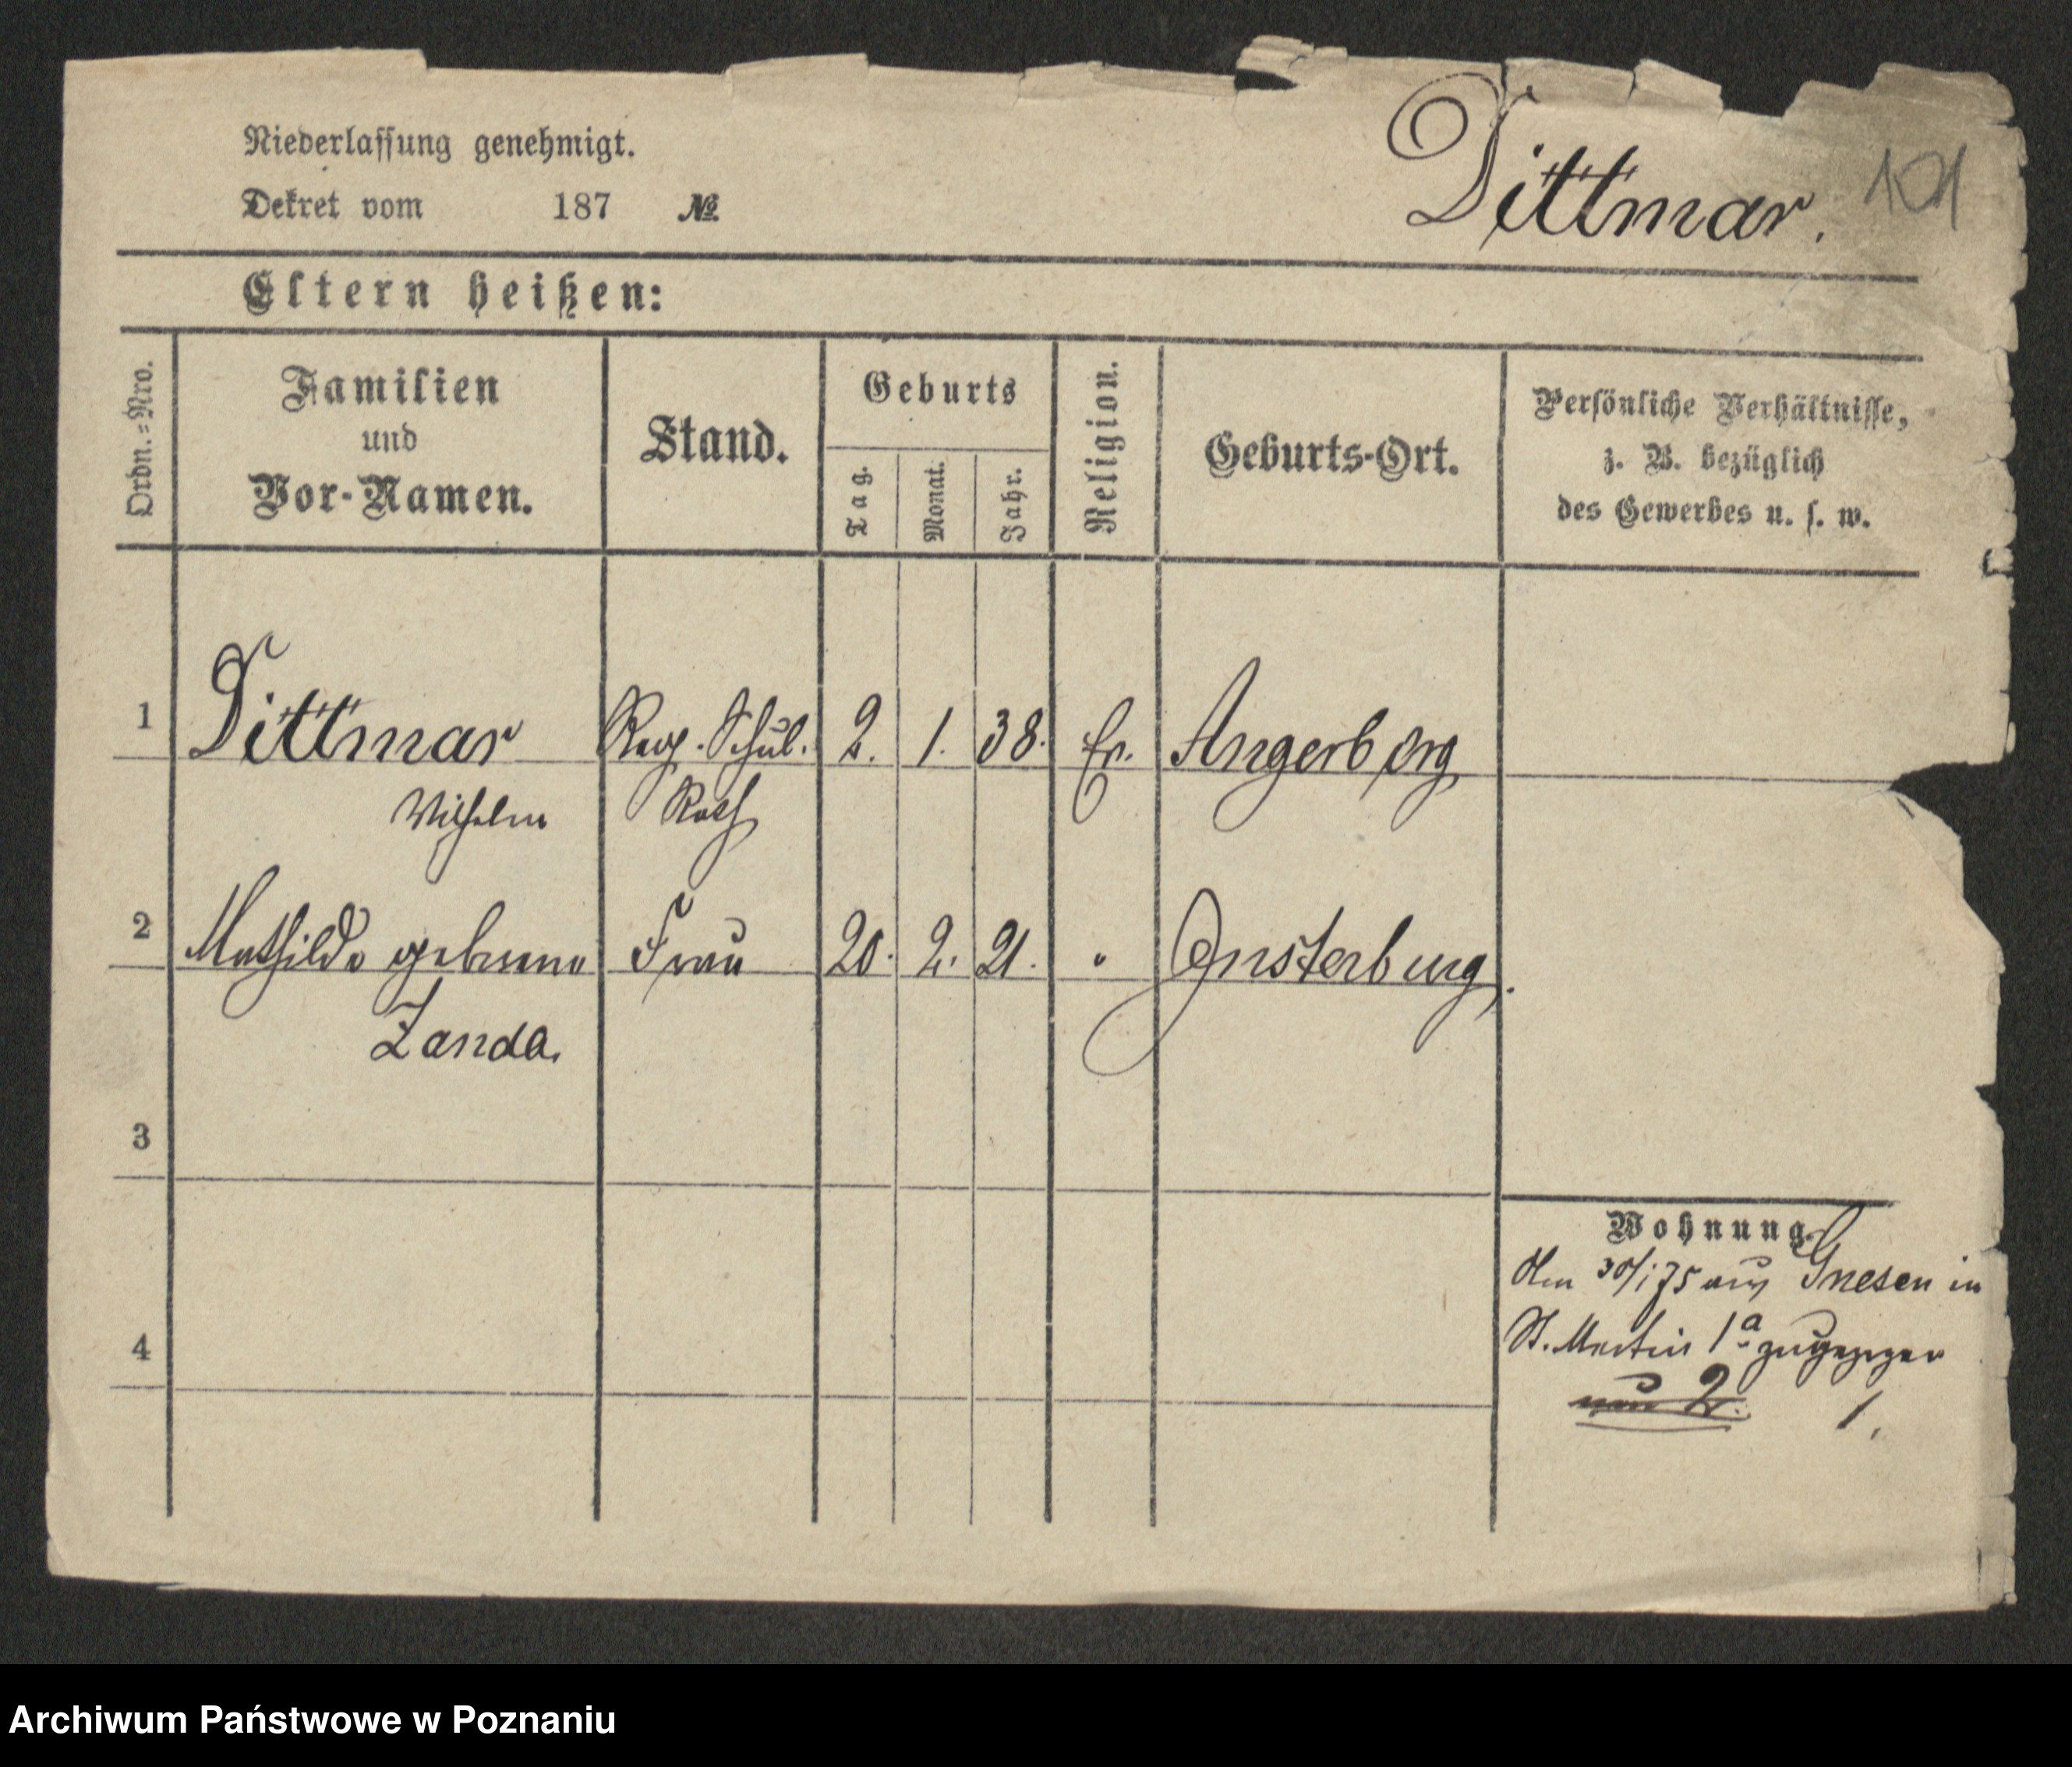 Niederlassung genehmigt.
Dekret vom 187 №
Dittmar. 101
Eltern heißen:
Ordn.=Nro.
Familien
und
Vor-Namen.
Stand.
Geburts
Tag.
Monat.
Jahr.
Religion.
Geburts-Ort.
Persönliche Verhältnisse,
z. B. bezüglich
des Gewerbes u. s. w.
1 Dittmar Reg. Schul. 2. 1. 38. Ev. Angerborg
Wilhelm Rath
2 Mathilde geborene Frau 20. 2. 21. " Insterburg.
Zanda.
3
Wohnung.
Am 30/1 75 aus Gnesen in
4 St. Martin 1a zugezogen
nun 2. 1.
Archiwum Państwowe w Poznaniu